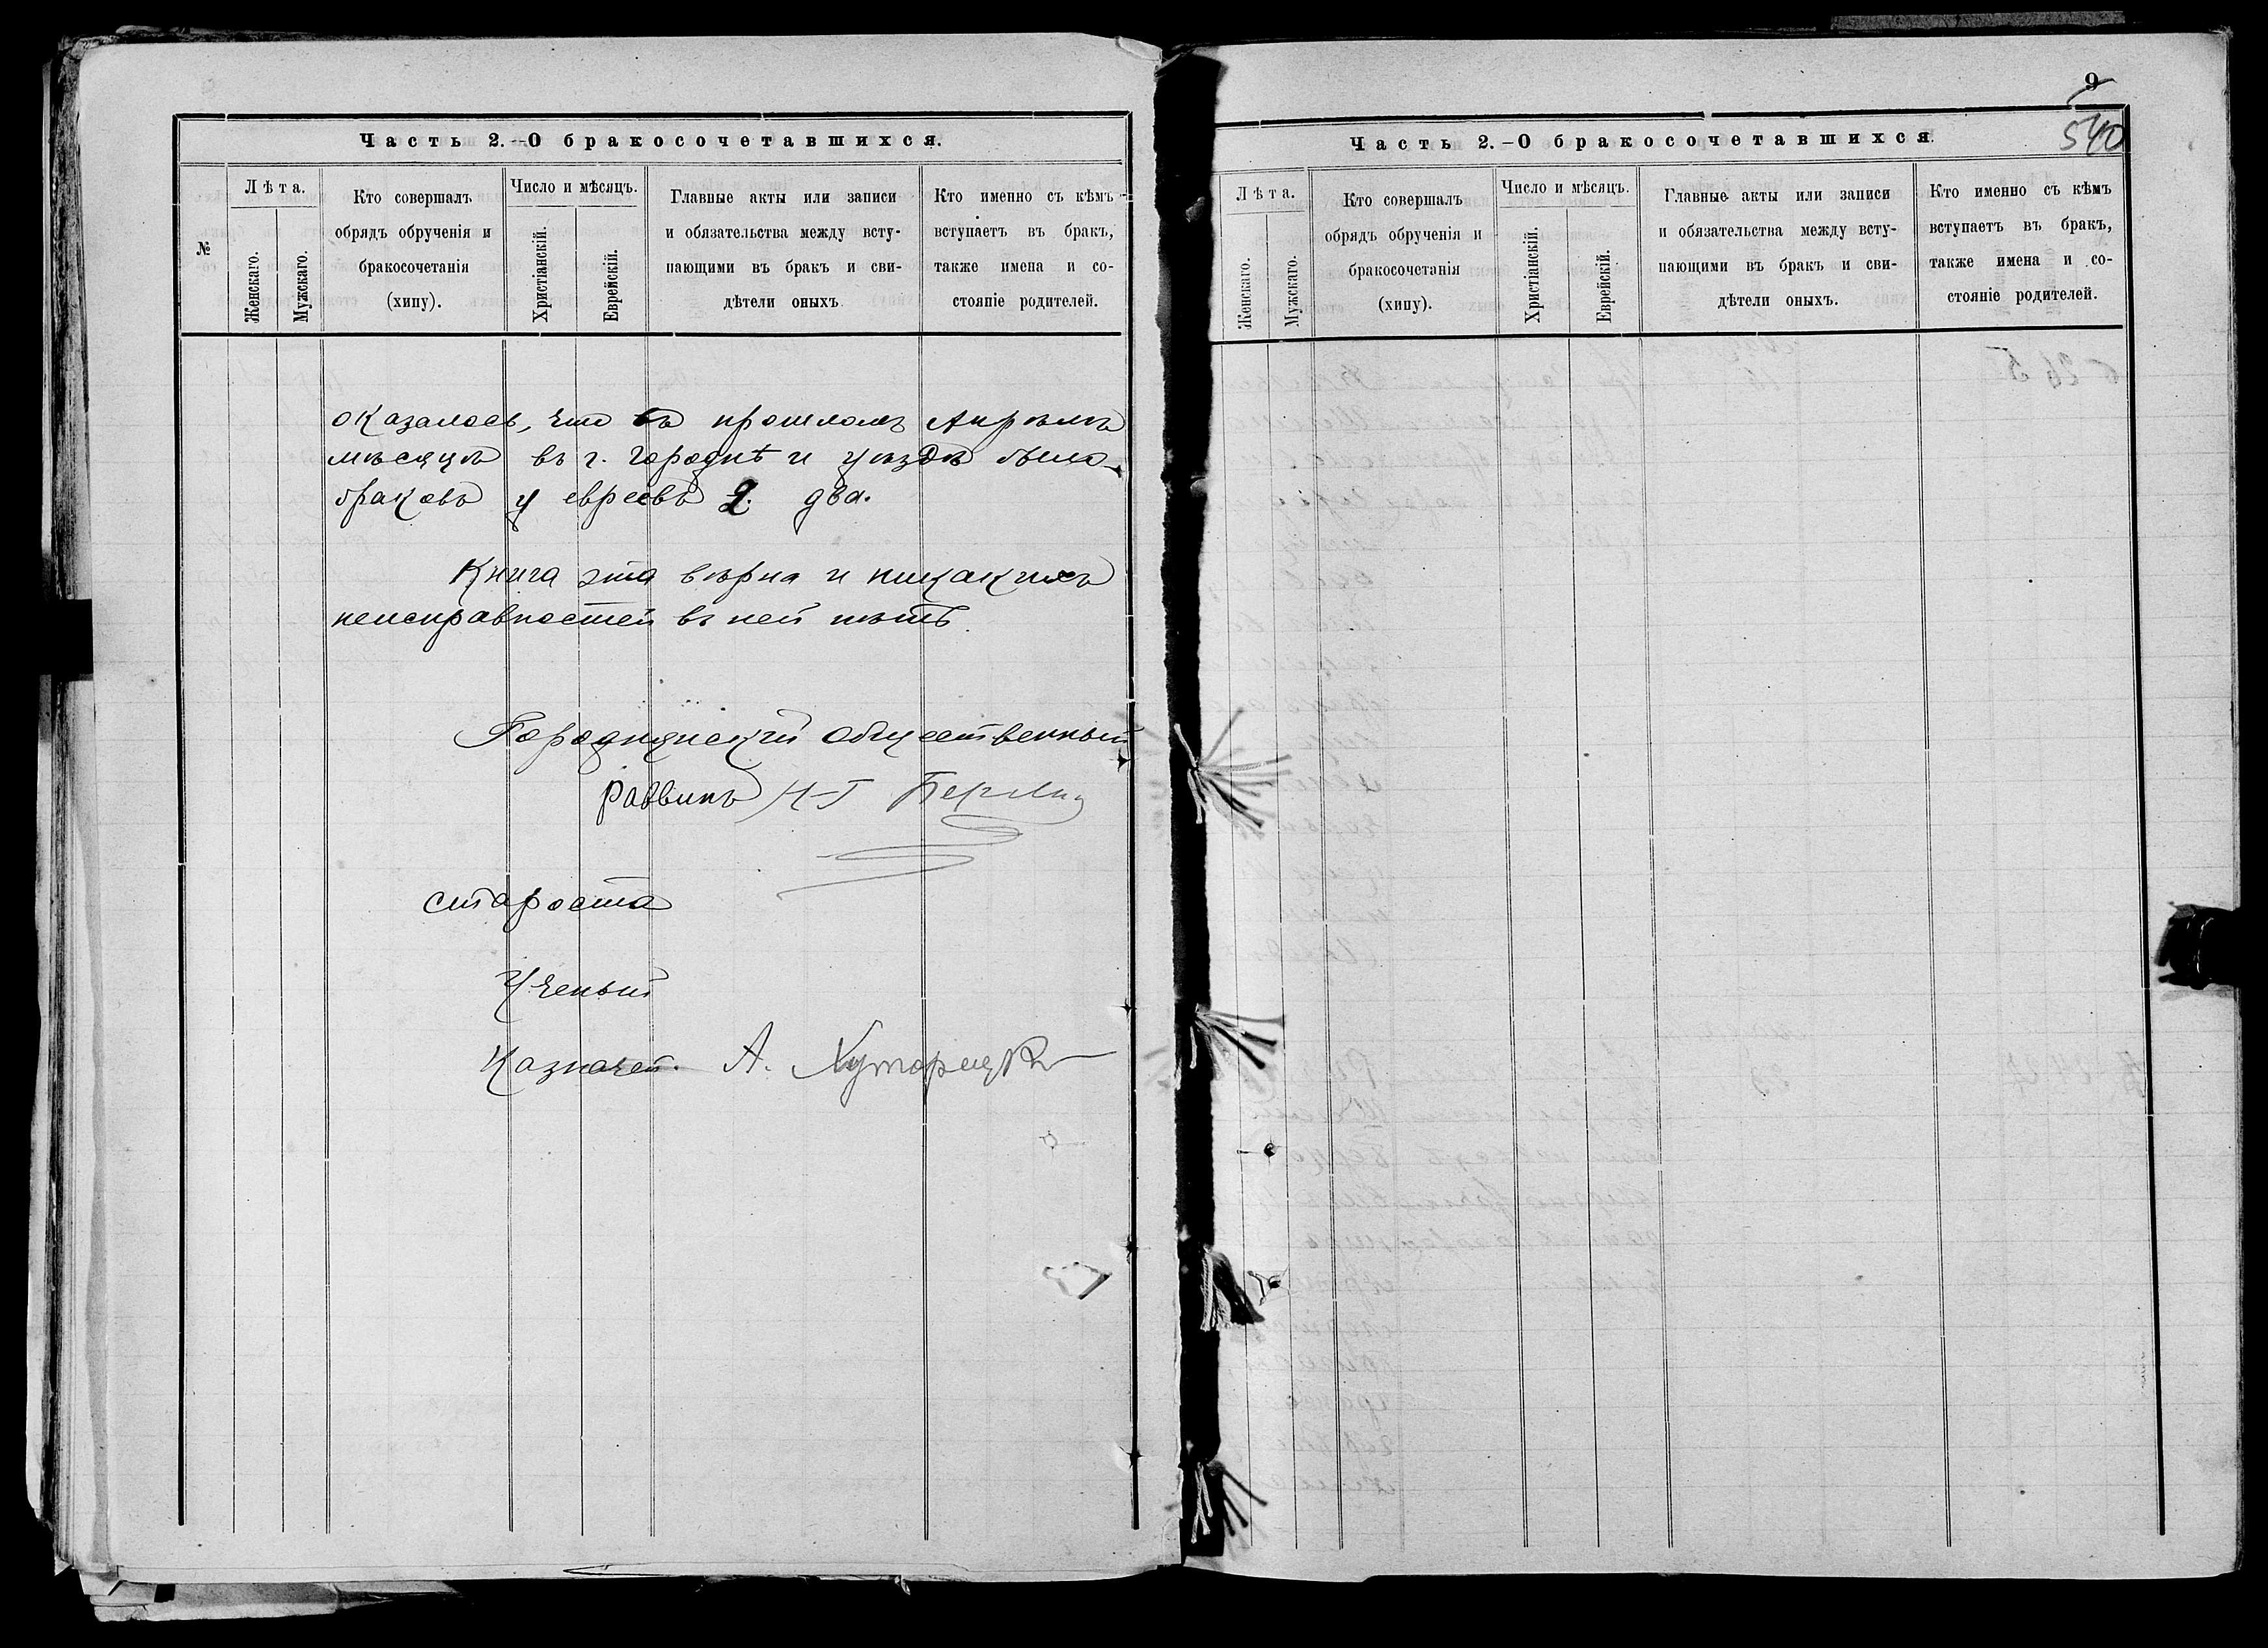 Часть 2.-О бракосочетавшихся.
№
Лѣта.
Женскаго.
Мужскаго.
Кто совершалъ
обрядъ обрученія и
бракосочетанія
(хипу).
Число и мѣсяцъ.
Христіанскій.
Еврейскій.
Главные акты или записи
и обязательства между всту-
пающими въ бракъ и сви-
дѣтели оныхъ.
Кто именно съ кѣмъ
вступаетъ въ бракъ,
также имена и со-
стояніе родителей.
оказалось, что въ прошломъ Апрѣлѣ
мѣсяцѣ въ г. Городнѣ и уѣздѣ было
браковъ у евреевъ 2. два.
Книга эта вѣрна и никакихъ
неисправностей въ ней нѣтъ
Городнянскій Общественный
Раввинъ
староста
Ученый
Казначей. А.
9
540
Часть 2.-О бракосочетавшихся.
Лѣта.
Женскаго.
Мужскаго.
Кто совершалъ
обрядъ обрученія и
бракосочетанія
(хипу).
Число и мѣсяцъ.
Христіанскій.
Еврейскій.
Главные акты или записи
и обязательства между всту-
пающими въ бракъ и сви-
дѣтели оныхъ.
Кто именно съ кѣмъ
вступаетъ въ бракъ,
также имена и со-
стояніе родителей.